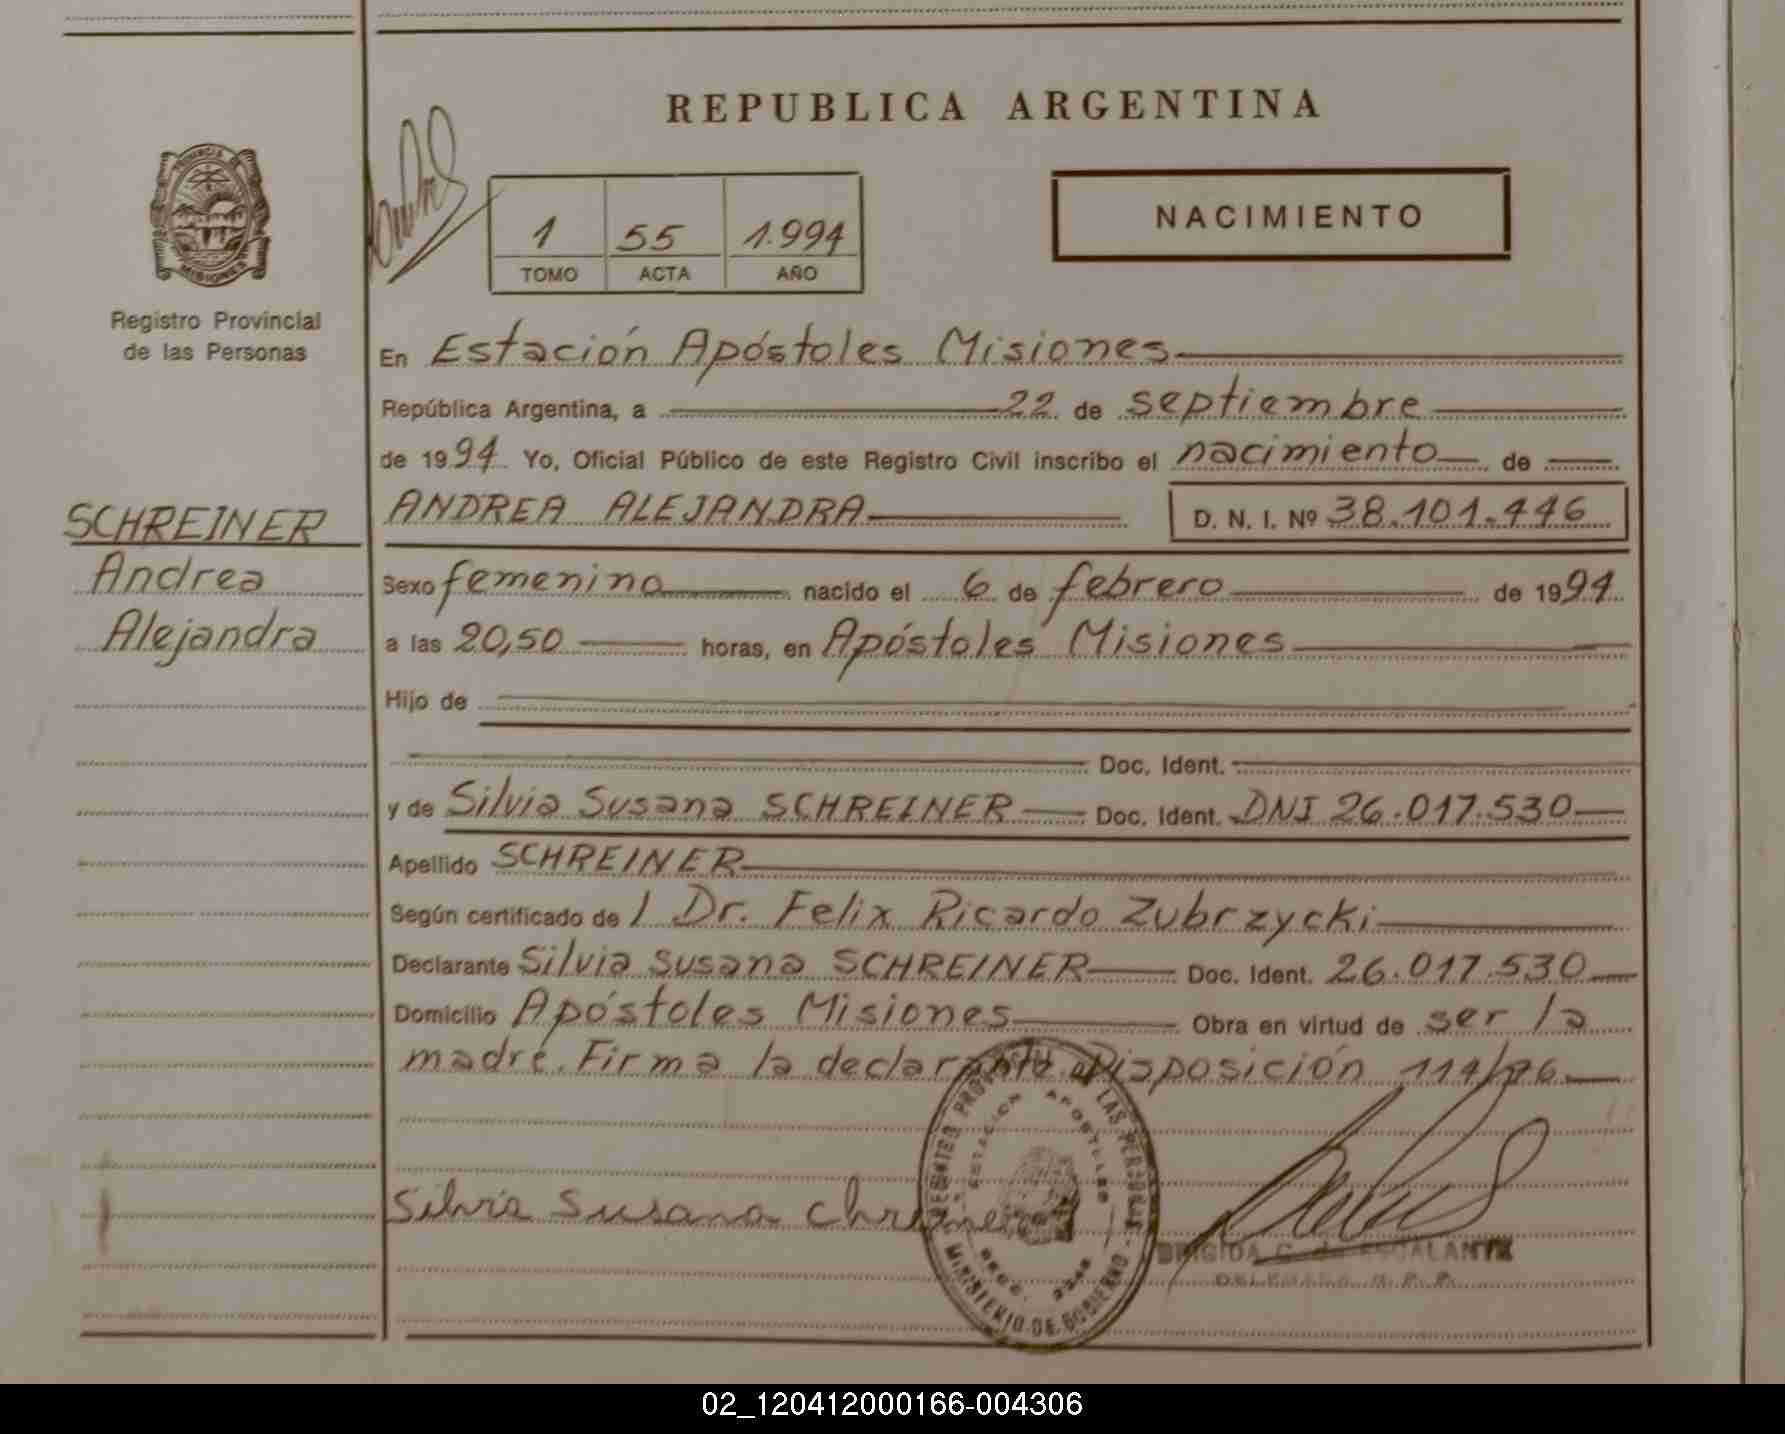 REPUBLICA ARGENTINA
PROVINCIA DE
MISIONES
Registro Provincial
de las Personas
1 55 1.994
TOMO ACTA AÑO
NACIMIENTO
En Estación Apóstoles Misiones
República Argentina, a 22 de septiembre
de 1994 Yo, Oficial Público de este Registro Civil inscribo el nacimiento de
SCHREINER
Andrea
Alejandra
ANDREA ALEJANDRA D. N. I. Nº 38.101.446
Sexo femenino nacido el 6 de febrero de 1994
a las 20,50 horas, en Apóstoles Misiones
Hijo de
Doc. Ident.
y de Silvia Susana SCHREINER Doc. Ident. DNI 26.017.530
Apellido SCHREINER
Según certificado de l Dr. Felix Ricardo Zubrzycki
Declarante Silvia Susana SCHREINER Doc. Ident. 26.017.530
Domicilio Apóstoles Misiones Obra en virtud de ser la
madre. Firma la declarante Disposición 114/
Silvia Susana
ESTACION APOSTOLES
LAS PERSONAS
MINISTERIO DE GOBIERNO
BRIGIDA G. de ESCALANTE
DELEGADA R. P. P.
02_120412000166-004306